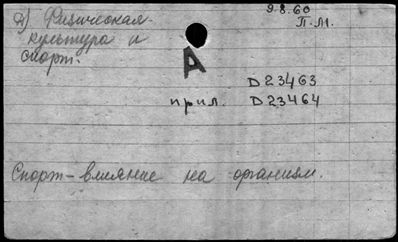 2) Физическая
культура и
спорт.
9.8.60
П.М.
А
D23463
прил. D23464
Спорт – влияние на организм.